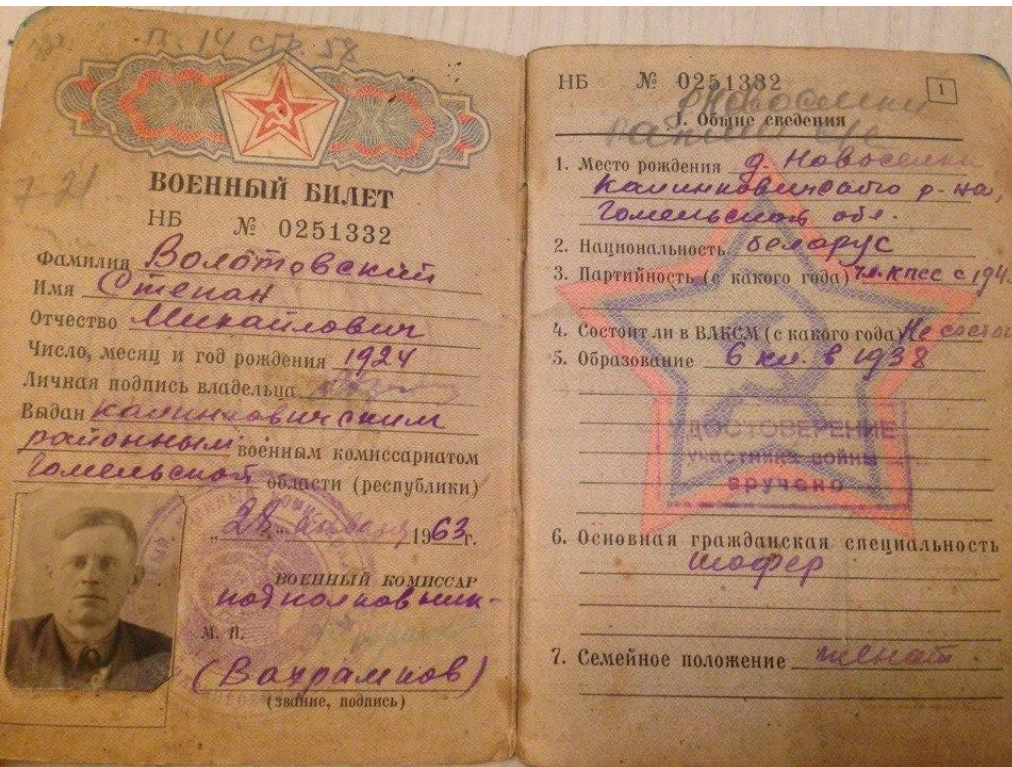 п. 14 стр 58
7-21
ВОЕННЫЙ БИЛЕТ
НБ № 0251332
Фамилия Волотовский
Имя Степан
Отчество Михайлович
Число, месяц и год рождения 1924
Личная подпись владельца
Выдан Калинковичским
районным военным комиссариатом
Гомельской области (республики)
„28“ 1963 г.
ВОЕННЫЙ КОМИССАР
подполковник
М. П.
(звание, подпись)
НБ № 0251332
1
д Новоселки
I. Общие сведения
1. Место рождения д. Новоселки
Калинковичского р-на,
Гомельской обл.
2. Национальность белорус
3. Партийность (с какого года) чл. КПСС с 194
4. Состоит ли в ВЛКСМ (с какого года) Не состои
5. Образование 6 кл. в 1938
УДОСТОВЕРЕНИЕ
УЧАСТНИКА ВОЙНЫ
вручено
6. Основная гражданская специальность
шофер
7. Семейное положение женат